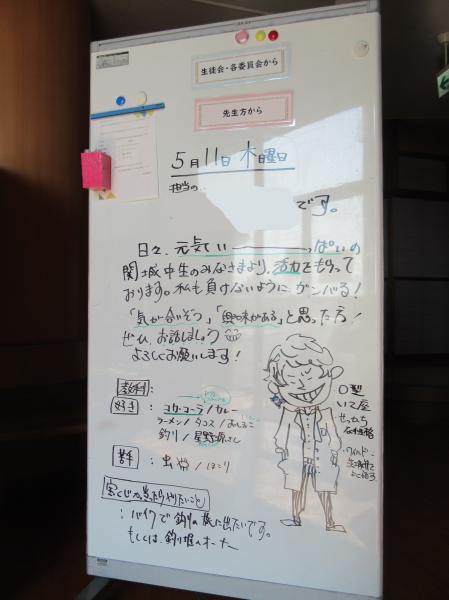 生徒会・各委員会から
先生方から
5月11日 木曜日
担当の
です。
日々、元気でいーーーーっぱいの
関城中生のみなさまより、活力をもらって
おります。私も負けないようにガンバる!
「気が合いそう」「興味がある」と思った方!
ぜひ、お話しましょう
よろしくお願いします!
教科:
好き: コカ・コーラ/カレー
ラーメン/タコス/おしるこ
釣り/星野源さん
苦手: 出世/ほこり
宝くじが当たったらやりたいこと
:バイクで釣りの旅に出たいです。
もしくは、釣り堀のオーナー
O型
いて座
せっかち
な性格